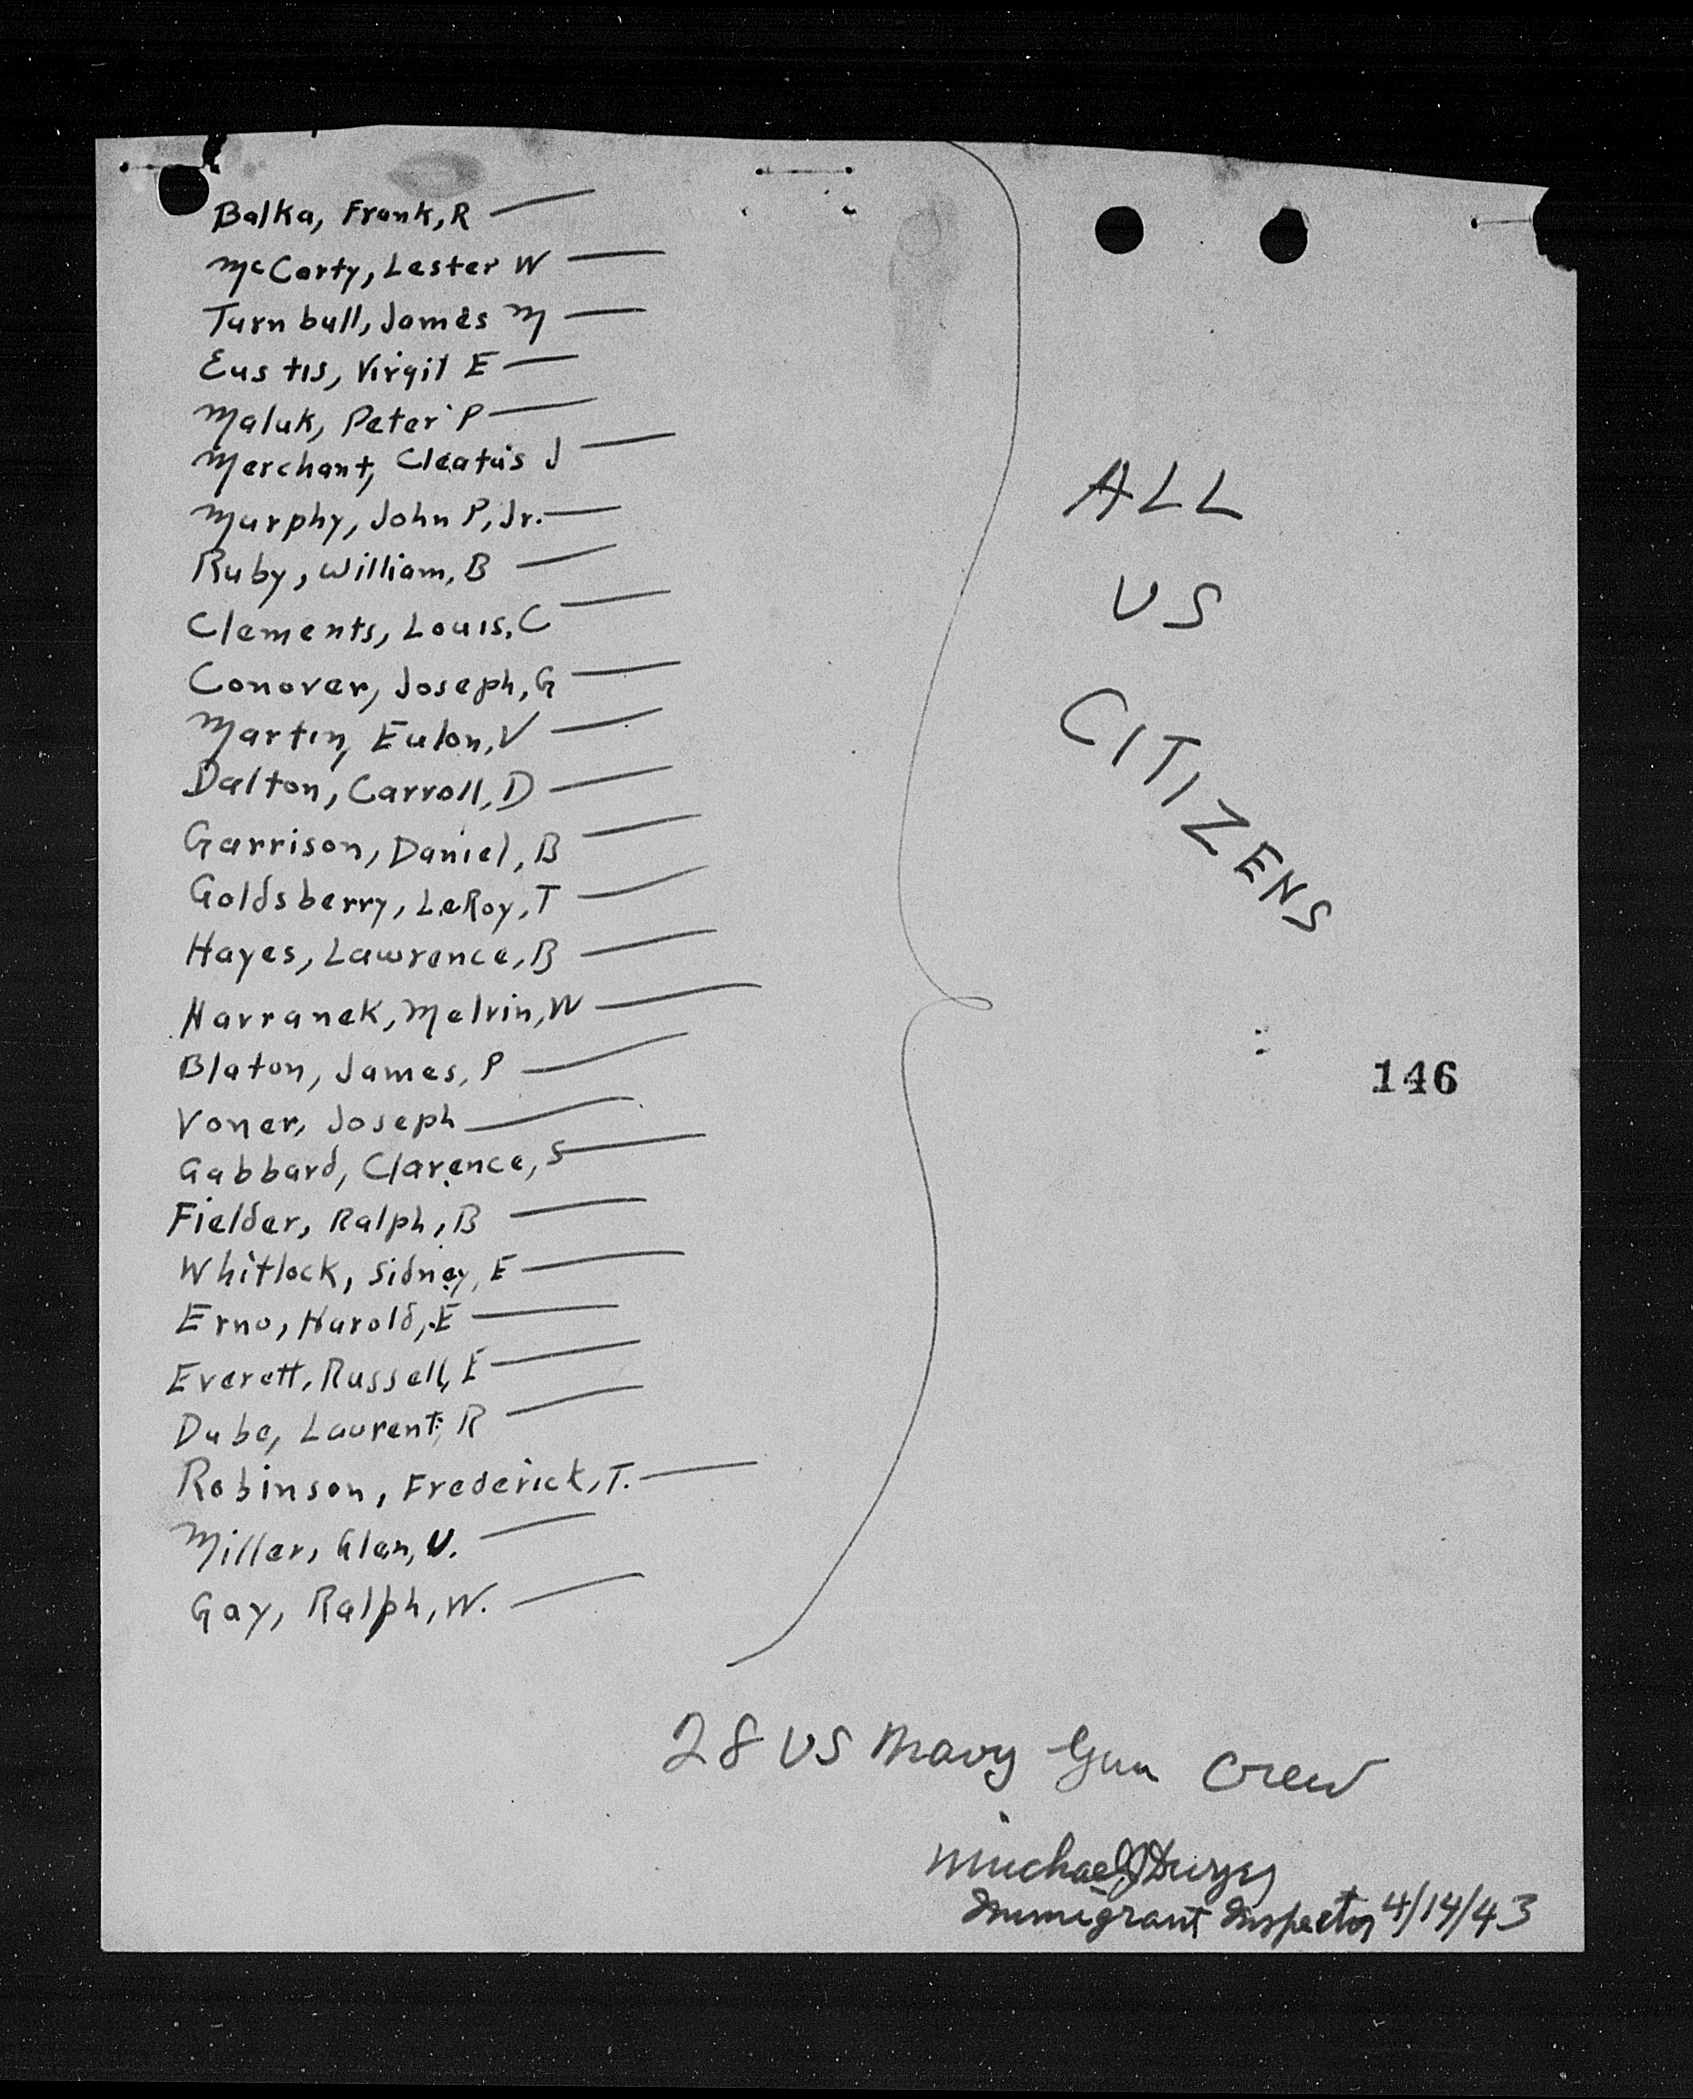 Balka, Frank, R
McCarty, Lester W
Turnbull, James M
Eustis, Virgil E
Maluk, Peter P
Merchant, Cleatus J
Murphy, John P, Jr.
Ruby, William, B
Clements, Louis, C
Conover, Joseph, G
Martin, Eulon, V
Dalton, Carroll, D
Garrison, Daniel, B
Goldsberry, LeRoy, T
Hayes, Lawrence, B
Harranek, Melvin, W
Blaton, James, P
Voner, Joseph
Gabbard, Clarence, S
Fielder, Ralph, B
Whitlock, Sidney, E
Erno, Harold, E
Everett, Russell, E
Dube, Laurent, R
Robinson, Frederick, T.
Miller, Glen, V.
Gay, Ralph, W.
ALL
US
CITIZENS
146
28 US Navy Gun Crew
Michael J
Immigrant Inspector 4/14/43